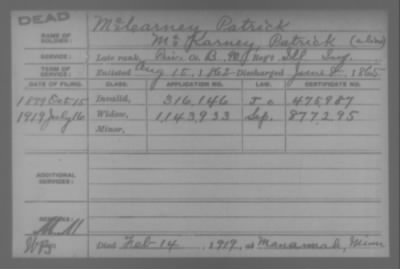 DEAD
NAME OF SOLDIER: McCearney, Patrick
McKarney, Patrick (alias)
SERVICE: Late rank, Priv. Co. B, 90 Reg't Ill Inf.
TERM OF SERVICE: Enlisted Aug 15, 1862 Discharged June 8, 1865
DATE OF FILING. CLASS. APPLICATION NO. LAW. CERTIFICATE NO.
Oct 15 Invalid, 316,146 475,987
1919 July 16 Widow, 1143933 877295
Minor,
ADDITIONAL SERVICES:
Died Feb 14, 1919, at Minn